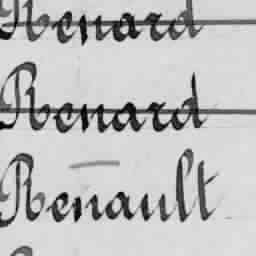 Renard
Renard
Renault